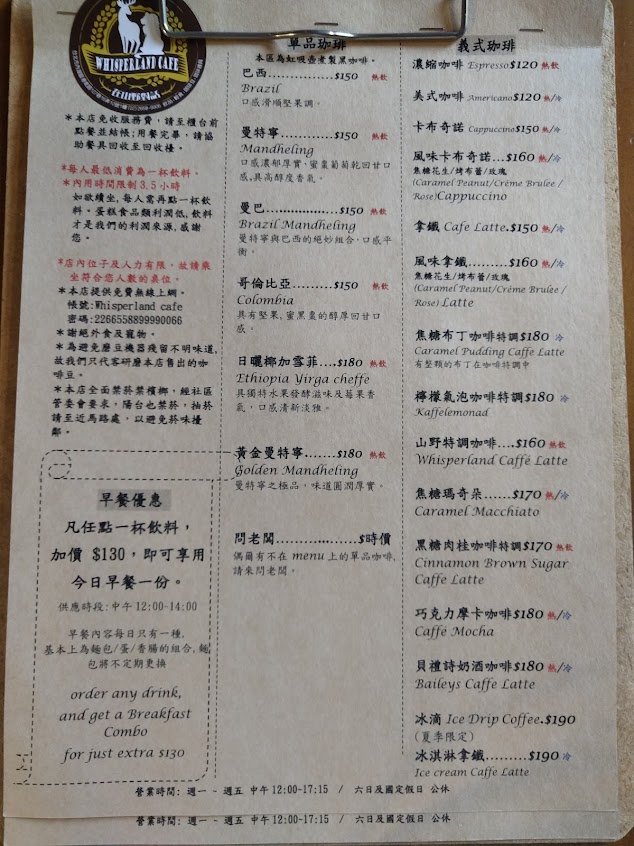 WHISPERLAND CAFE
*本店免收服務費，請至櫃台前
點餐並結帳;用餐完畢，請協
助餐具回收至回收檯。
*每人最低消費為一杯飲料。
*內用時間限制3.5小時
如欲續坐,每人需再點一杯飲
料。蛋糕食品類利潤低,飲料
才是我們的利潤來源,感謝
您。
*店內位子及人力有限。故請乘
坐符合您人數的桌位。
*本店提供免費無線上網。
帳號:Whisperland cafe
密碼:2266558899990066
*謝絕外食及寵物。
*為避免磨豆機器殘留不明味道,
故我們只代客研磨本店售出的咖
啡豆。
*本店全面禁菸禁檳榔，經社區
管委會要求，陽台也禁菸，抽菸
請至近馬路處，以避免菸味擾
鄰。
早餐優惠
凡任點一杯飲料，
加價 $130，即可享用
今日早餐一份。
供應時段:中午12:00-14:00
早餐內容每日只有一種,
基本上為麵包/蛋/香腸的組合,麵
包將不定期更換
order any drink,
and get a Breakfast
Combo
for just extra $130
單品珈琲
本區為虹吸壺煮製黑咖啡。
巴西...............$150 熱飲
Brazil
口感滑順堅果調。
曼特寧.............$150 熱飲
Mandheling
口感濃郁厚實、蜜棗葡萄乾回甘口
感。具高醇度香氣。
曼巴................$150 熱飲
Brazil Mandheling
曼特寧與巴西的絕妙組合,口感平
衡。
哥倫比亞...........$150 熱飲
Colombia
具有堅果,蜜黑棗的醇厚回甘口
感。
日曬椰加雪菲....$180 熱飲
Ethiopia Yirga cheffe
具獨特水果發酵滋味及莓果香
氣，口感清新淡雅。
黃金曼特寧.......$180 熱飲
Golden Mandheling
曼特寧之極品，味道圓潤厚實。
問老闆...............$時價
偶爾有不在 menu 上的單品咖啡,
請來問老闆。
義式珈琲
濃縮咖啡 Espresso$120 熱飲
美式咖啡 Americano$120 熱/冷
卡布奇諾 Cappuccino$150 熱/冷
風味卡布奇諾...$160 熱/冷
焦糖花生/烤布蕾/玫瑰
(Caramel Peanut/Crème Brulee /
Rose)Cappuccino
拿鐵 Cafe Latte.$150 熱/冷
風味拿鐵.........$160 熱/冷
焦糖花生/烤布蕾/玫瑰
(Caramel Peanut/Crème Brulee /
Rose) Latte
焦糖布丁咖啡特調$180 冷
Caramel Pudding Caffe Latte
有整顆的布丁在咖啡特調中
檸檬氣泡咖啡特調$180 冷
Kaffelemonad
山野特調咖啡....$160 熱飲
Whisperland Caffé Latte
焦糖瑪奇朵......$170 熱/冷
Caramel Macchiato
黑糖肉桂咖啡特調$170 熱飲
Cinnamon Brown Sugar
Caffe Latte
巧克力摩卡咖啡$180 熱/冷
Caffé Mocha
貝禮詩奶酒咖啡$180 熱/冷
Baileys Caffe Latte
冰滴 Ice Drip Coffee.$190
(夏季限定)
冰淇淋拿鐵.........$190 冷
Ice cream Caffe Latte
營業時間: 週一 - 週五 中午12:00-17:15 / 六日及國定假日 公休
營業時間: 週一 - 週五 中午12:00-17:15 / 六日及國定假日 公休